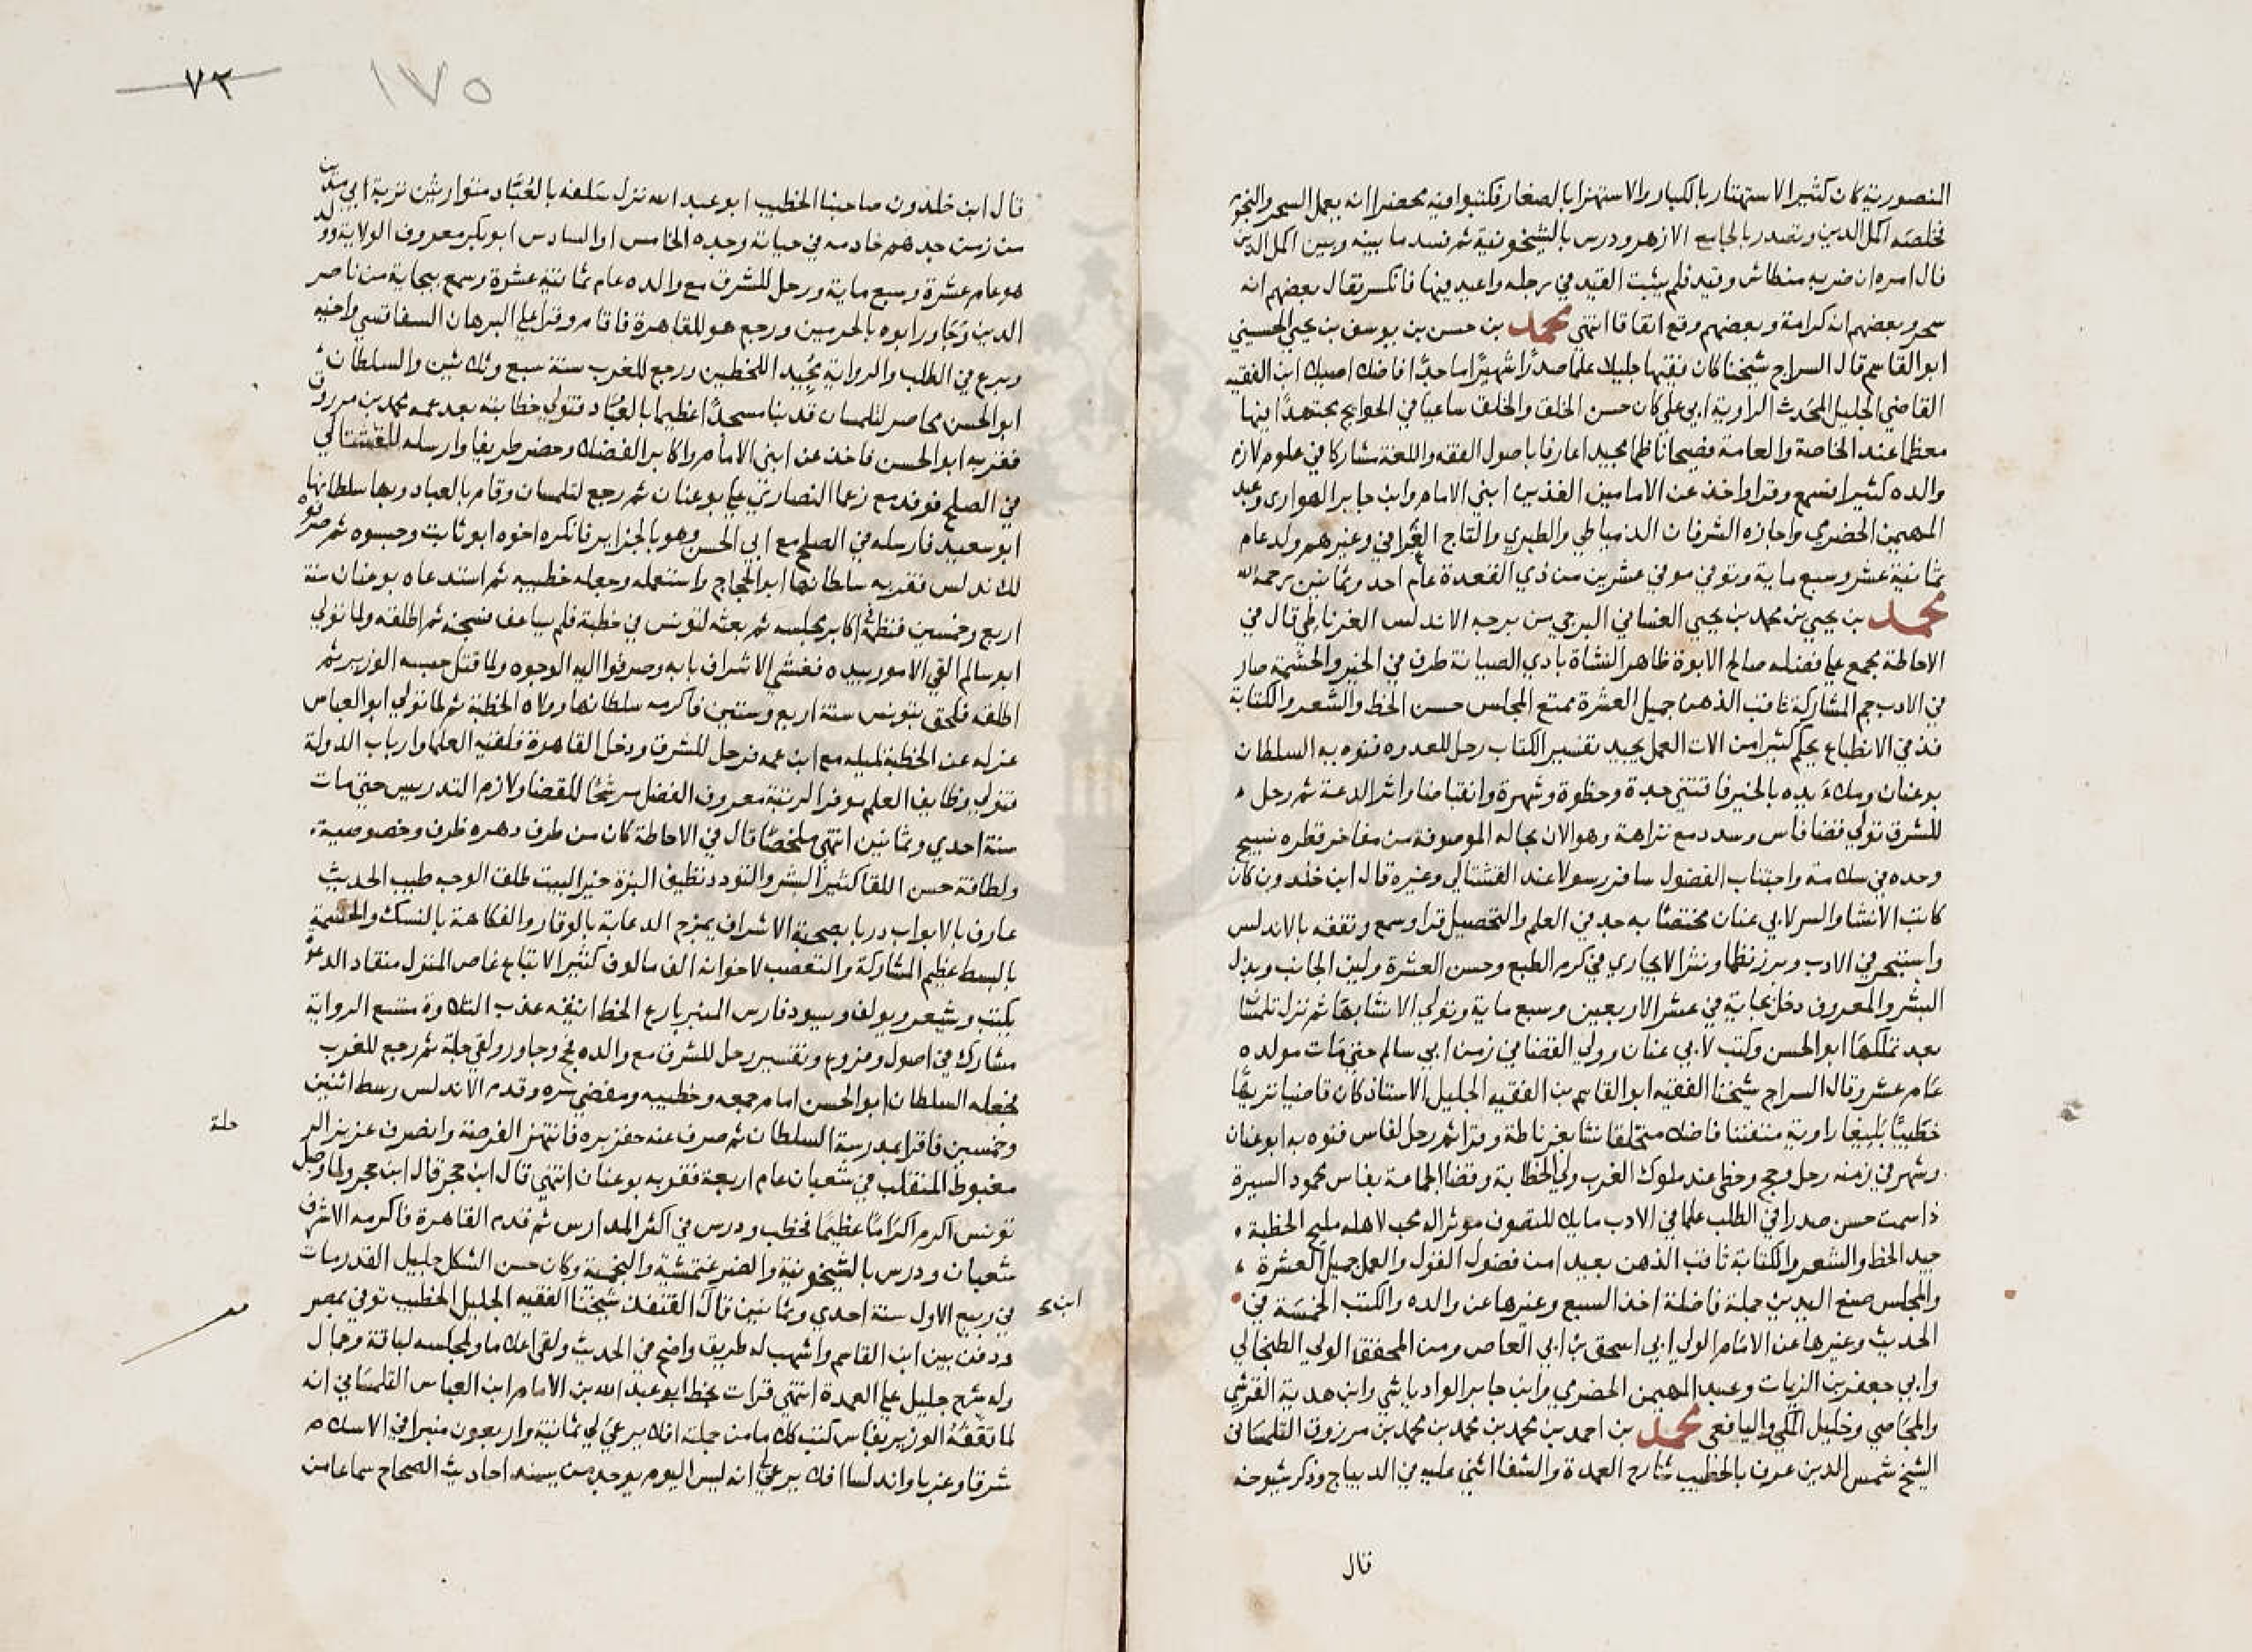 المنصورية كان كثير الاستهتار بالكبار والاستهزا بالصغار فكتبوا فيه محضرا انه يعمل السحر والنجوم
فخلصه اكمل الدين وتصدر بالجامع الازهر ودرس بالشيخونية ثم فسد ما بينه وبين اكمل الدين
قال امره ان ضربه منطاش وقيد فلم يثبت القيد في رجله واعيد فيها فانكسر فقال بعضهم انه
سحر وبعضهم انه كرامة وبعضهم وقع اتفاقا انتهى محمد بن حسن بن يوسف بن يحيى الحسيني
ابو القاسم قال السراج شيخنا كان فقيها جليلا علما صدرا شهيرا ماجدا فاضلا اصيلا ابن الفقيه
القاضي الجليل المحدث الراوية ابي علي كان حسن الخلق والخلق ساعيا في الحوايج مجتهدا فيها
معظما عند الخاصة والعامة فصيحا ناظما مجيدا عارفا باصول الفقه واللغة مشاركا في علوم لازم
والده كثيرا فسمع وقرا واخذ عن الامامين الفذين ابني الامام وابن جابر الهوارى وعبد
المهيمن الحضرمي واجازه الشرفان الدمياطي والطبري والتاج الغرافي وغيرهم ولد عام
ثمانية عشر وسبع ماية وتوفي موفي عشرين من ذي القعدة عام احد وثمانين رحمه الله
محمد بن يحيى بن محمد بن يحيى الغساني البرجي من برجه الاندلس الغرناطي قال في
الاحاطة مجمع على فضله صالح الابوة ظاهر النشاة بادي الصيانة طرف في الخير والحشمة صدر
في الادب جم المشاركة ثاقب الذهن جميل العشرة ممتع المجلس حسن الخط والشعر والكتابة
فذ في الانطباع يحكم كثيرا من الات العمل يجيد تفسير الكتاب رحل للعدوه فنوه به السلطان
بو عنان وملاء يده بالخير فاقتنى جدة وحظوة وشهرة وانقباضا واثر الدعة ثم رحل
للشرق تولى قضا فاس وسدد مع نزاهة وهو الان بحاله الموصوفة من مفاخر قطره نسيج
وحده في سلامة واجتناب الفضول سافر رسولا عند القشتالي وغيره قال ابن خلدون كان
كاتب الانشا والسر لابي عنان مختصا به جد في العلم والتحصيل قرا وسمع وتفقه بالاندلس
واستبحر في الادب وبرز نظما ونثرا لا يجارى في كرم الطبع وحسن العشرة ولين الجانب وبذل
البشر والمعروف دخل بجاية في عشر الاربعين وسبع ماية وتولى الانشا بها ثم نزل تلمسان
بعد تملكها ابو الحسن وكتب لابي عنان وولي القضا في زمن ابي سالم حتى مات مولده
عام عشر وقال السراج شيخنا الفقيه ابو القاسم بن الفقيه الجليل الاستاذ كان قاضيا نزيها
خطيبا بليغا راوية متفننا فاضلا متخلقا نشا بغرناطة وقرا ثم رحل لفاس فنوه به ابو عنان
وشهر في زمنه رحل وحج وحظي عند ملوك الغرب ولي الخطابة وقضا الجماعة بفاس محمود السيرة
ذا سمت حسن صدرا في الطلب علما في الادب مايلا للتصوف موثرا له محب لاهله مليح الخطبة
جيد الخط والشعر والكتابة ثاقب الذهن بعيدا من فضول القول والعمل جميل العشرة
والمجلس صنع اليدين جملة فاضلة اخذ السبع وغيرها عن والده والكتب الخمسة في
الحديث وغيرها عن الامام الولي ابي اسحق بن ابي العاص ومن المحقق الولي الطنجالي
وابي جعفر بن الزيات وعبد المهيمن الحضرمي وابن جابر الوادياشي وابن هدية القرشي
والمجاصي وخليل المكي واليافعي محمد بن احمد بن محمد بن محمد بن محمد بن مرزوق التلمساني
الشيخ شمس الدين عرف بالخطيب شارح العمدة والشفا اثنى عليه في الديباج وذكر شيوخه
قال
٧٣
١٧٥
قال ابن خلدون صاحبنا الخطيب ابو عبد الله نزل سلفه بالعباد متوارثين تربة ابي مدين
من زمن جدهم خادمه في حياته وجده الخامس او السادس ابو بكر معروف الولاية وولد
هو عام عشرة وسبع ماية ورحل للشرق مع والده عام ثمانية عشرة وسمع ببجاية من ناصر
الدين وجاور ابوه بالحرمين ورجع هو للقاهرة فاقام وقرا على البرهان السفاقسي واخيه
وبرع في الطلب والرواية يجيد الخطين ورجع للغرب سنة سبع وثلاثين والسلطان
ابو الحسن محاصر لتلمسان قد بنا مسجدا عظيما بالعباد فتولى خطابته بعد عمه محمد بن مرزوق
فقربه ابو الحسن فاخذ عن ابني الامام واكابر الفضلا وحضر طريفا وارسله للقشتالي
في الصلح فوفد مع زعما النصارى على ابو عنان ثم رجع لتلمسان وقام بالعباد وبها سلطانها
ابو سعيد فارسله في الصلح مع ابي الحسن وهو بالجزاير فانكره اخوه ابو ثابت وحبسوه ثم صرفوه
للاندلس فقربه سلطانها ابو الحجاج واستعمله وجعله خطيبه ثم استدعاه بو عنان سنة
اربع وخمسين فنظمه في اكابر مجلسه ثم بعثه لتونس في خطبة فلم يساعف فسجنه ثم اطلقه ولما تولى
ابو سالم القى الامور بيده فغشي الاشراف بابه وصرفوا اليه الوجوه ولما قتل حبسه الوزير ثم
اطلقه فلحق بتونس سنة اربع وستين فاكرمه سلطانها وولاه الخطبة ثم لما تولى ابو العباس
عزله عن الخطبة لميله مع ابن عمه فرحل للشرق ودخل القاهرة فلقيه العلما وارباب الدولة
فتولى وظايف العلم موفر الرتبة معروف الفضل مرشحا للقضا ولازم التدريس حتى مات
سنة احدى وثمانين انتهى ملخصا قال في الاحاطة كان من طرف دهره ظرف وخصوصية
ولطافة حسن اللقا كثير البشر والتودد نظيف البزة خير البيت طلق الوجه طيب الحديث
عارف بالابواب دربا بصحبة الاشراف يمزج الدعابة بالوقار والفكاهة بالنسك والحشمة
بالبسط عظيم المشاركة والتعصب لاخوانه الف مالوف كثير الاتباع غاص المنزل منقاد الدعوة
يكتب ويشعر ويولف ويسود فارس المنبر بارع الخط انيقه عذب التلاوة متسع الرواية
مشارك في اصول وفروع وتفسير رحل للشرق مع والده فحج وجاور ولقي جلة ثم رجع للغرب
جلة
فجعله السلطان ابو الحسن امام جمعه وخطيبه ومفضي سره وقدم الاندلس وسط اثنين
وخمسين فاقرا بمدرسة السلطان ثم صرف عنه جفن بره فانتهز الفرصة وانصرف عزيز الر
مغبوط المنقلب في شعبان عام اربعة فقربه بو عنان انتهى قال ابن حجر قال ابن حجر ولما وصل
تونس اكرم اكراما عظيما فخطب ودرس في اكثر المدارس ثم قدم القاهرة فاكرمه الاشرف
شعبان ودرس بالشيخونية والصرغتمشية والنجمية وكان حسن الشكل جليل القدر مات
في ربيع الاول سنة احدى وثمانين قال القنفذ شيخنا الفقيه الجليل الخطيب توفي بمصر
ابن
ودفن بين ابن القاسم واشهب له طريق واضح في الحديث ولقي اعلاما ولمجلسه لباقة وجمال
وله شرح جليل على العمدة انتهى قرات بخط ابو عبد الله بن الامام ابن العباس التلمساني انه
لما ثقفه الوزير بفاس كتب كلاما من جملته افلا يرعى لي ثمانية واربعون منبرا في الاسلام
شرقا وغربا واندلسا افلا يرعى لي انه ليس اليوم يوجد من يسند احاديث الصحاح سماعا من